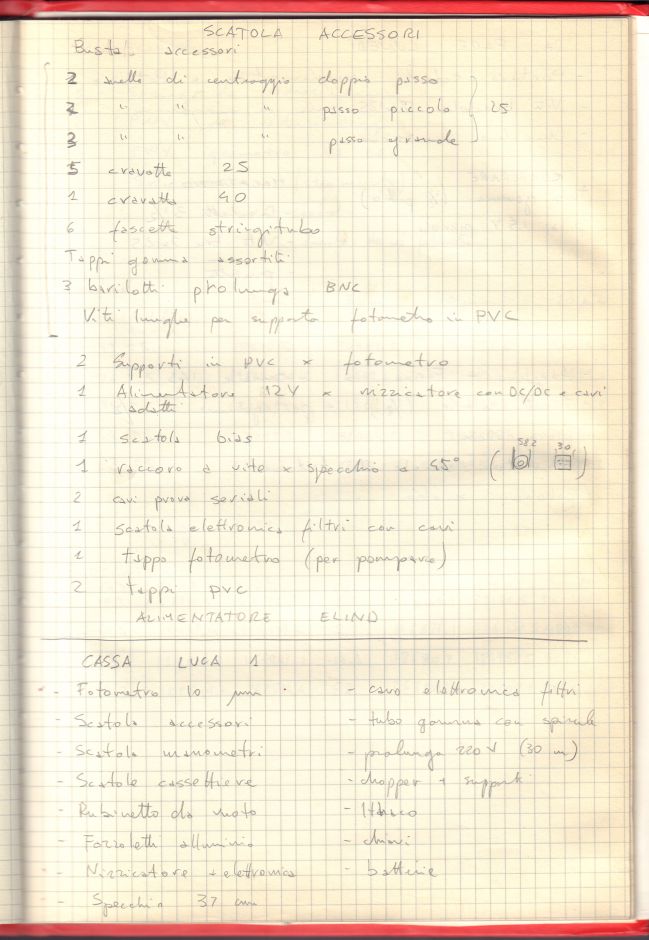 SCATOLA ACCESSORI
Busta accessori
2 anelli di centraggio doppio passo
2 " " " passo piccolo 25
3 " " " passo grande
5 cravatte 25
1 cravatta 40
6 fascette stringitubo
Tappi gomma assortiti
3 barilotti prolunga BNC
Viti lunghe per supporto fotometro in PVC
2 Supporti in PVC x fotometro
1 Alimentatore 12V x nizzicatore con DC/DC e cavi
adatti
1 scatola bias
1 raccoro a vite x specchio a 45° ( 30 )
2 cavi prova seriali
1 scatola elettronica filtri con cavi
1 tappo fotometro (per pompare)
2 tappi PVC
ALIMENTATORE ELIND
CASSA LUCA 1
- Fotometro 10 μm
- Scatola accessori
- Scatola manometri
- Scatole cassettiere
- Rubinetto da vuoto
- Fazzoletti alluminio
- Nizzicatore + elettronica
- Specchio 37 cm
- cavo elettronica filtri
- tubo gomma con spirale
- prolunga 220 V (30 m)
- chopper + supporti
- Ithaco
- chiavi
- batterie